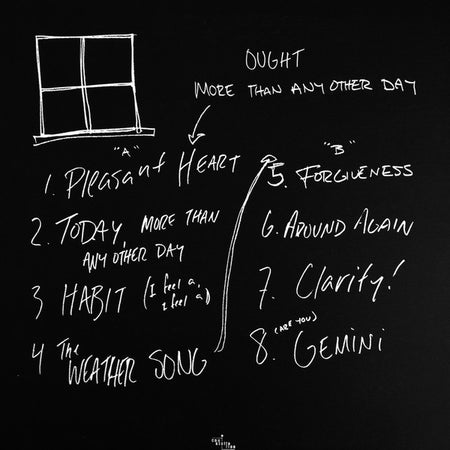 OUGHT
MORE THAN ANY OTHER DAY
"A"
1. Pleasant HEART
2. TODAY, MORE THAN
ANY OTHER DAY
3 HABIT (I feel a,
I feel a)
4 The
WEATHER SONG
"B"
5. FORGIVENESS
6. AROUND AGAIN
7. Clarity!
(ARE YOU)
8. GEMINI